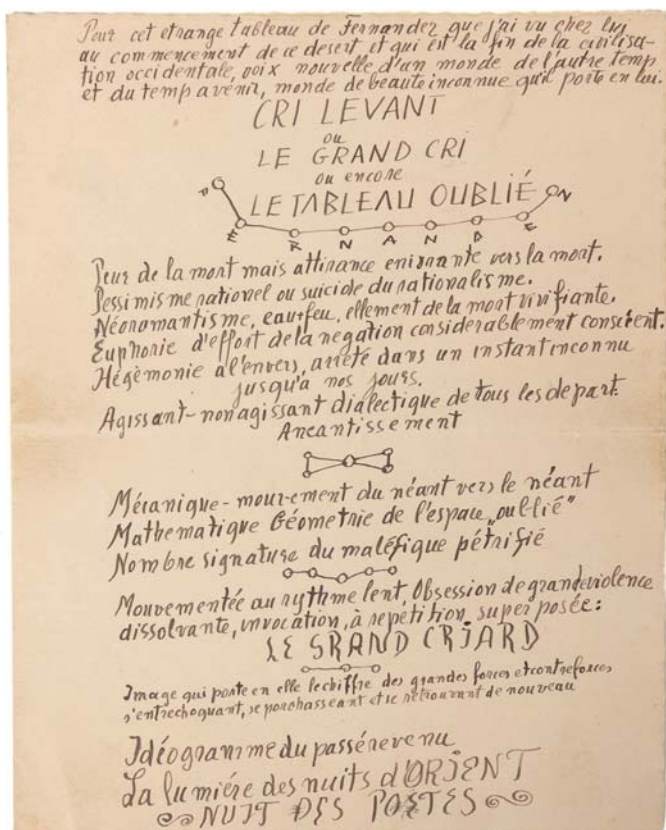 Pour cet etrange tableau de Fernandez que j'ai vu chez lui
au commencement de ce desert et qui est la fin de la civilisa-
tion occidentale, voix nouvelle d'un monde de l'autre temp
et du temp avenir, monde de beaute inconnue qu'il porte en lui.
CRI LEVANT
ou
LE GRAND CRI
ou encore
LE TABLEAU OUBLIÉ
FERNANDEN
Peur de la mort mais attirance enivrante vers la mort.
Pessimisme rationel ou suicide du rationalisme.
Néoromantisme, eau-feu, ellement de la mort vivifiante.
Euphorie d'effort de la negation considerablement conscient.
Hégèmonie a l'envers, arrété dans un instant inconnu
jusqu'a nos jours.
Agissant-nonagissant dialectique de tous les depart.
Aneantissement
Mécanique-mouvement du néant vers le néant
Mathematique Géometrie de l'espace „oublié"
Nombre signature du maléfique pétrifié
Mouvementée au rythme lent, Obsession de grande violence
dissolvante, invocation, à repétition, super posée:
LE GRAND CRIARD
Image qui porte en elle le chiffre des grandes forces et contreforces
s'entrechoquant, se pourchasseant et se retrouvant de nouveau
Idéogramme du passé revenu
La lumiére des nuits d'ORIENT
NUIT DES POETES